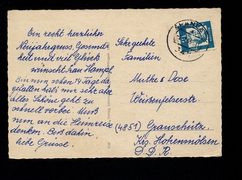 Ein recht herzliches
Neujahrsgruss, Gesund-
heit und viel Glück
wünscht Frau Hampl
Bin nun schon 14 Tage da
gefallen hat's mir sehr aber
alles Schöne geht zu
schnell vorbei. Muß
nun an die Heimreise
denken. Bis dahin
liebe Grüsse.
Sehr geehrte
Familien
Mutke & Dose
Weißenfelserstr.
(4851) Granschütz
Krs. Hohenmölsen
D.D.R.